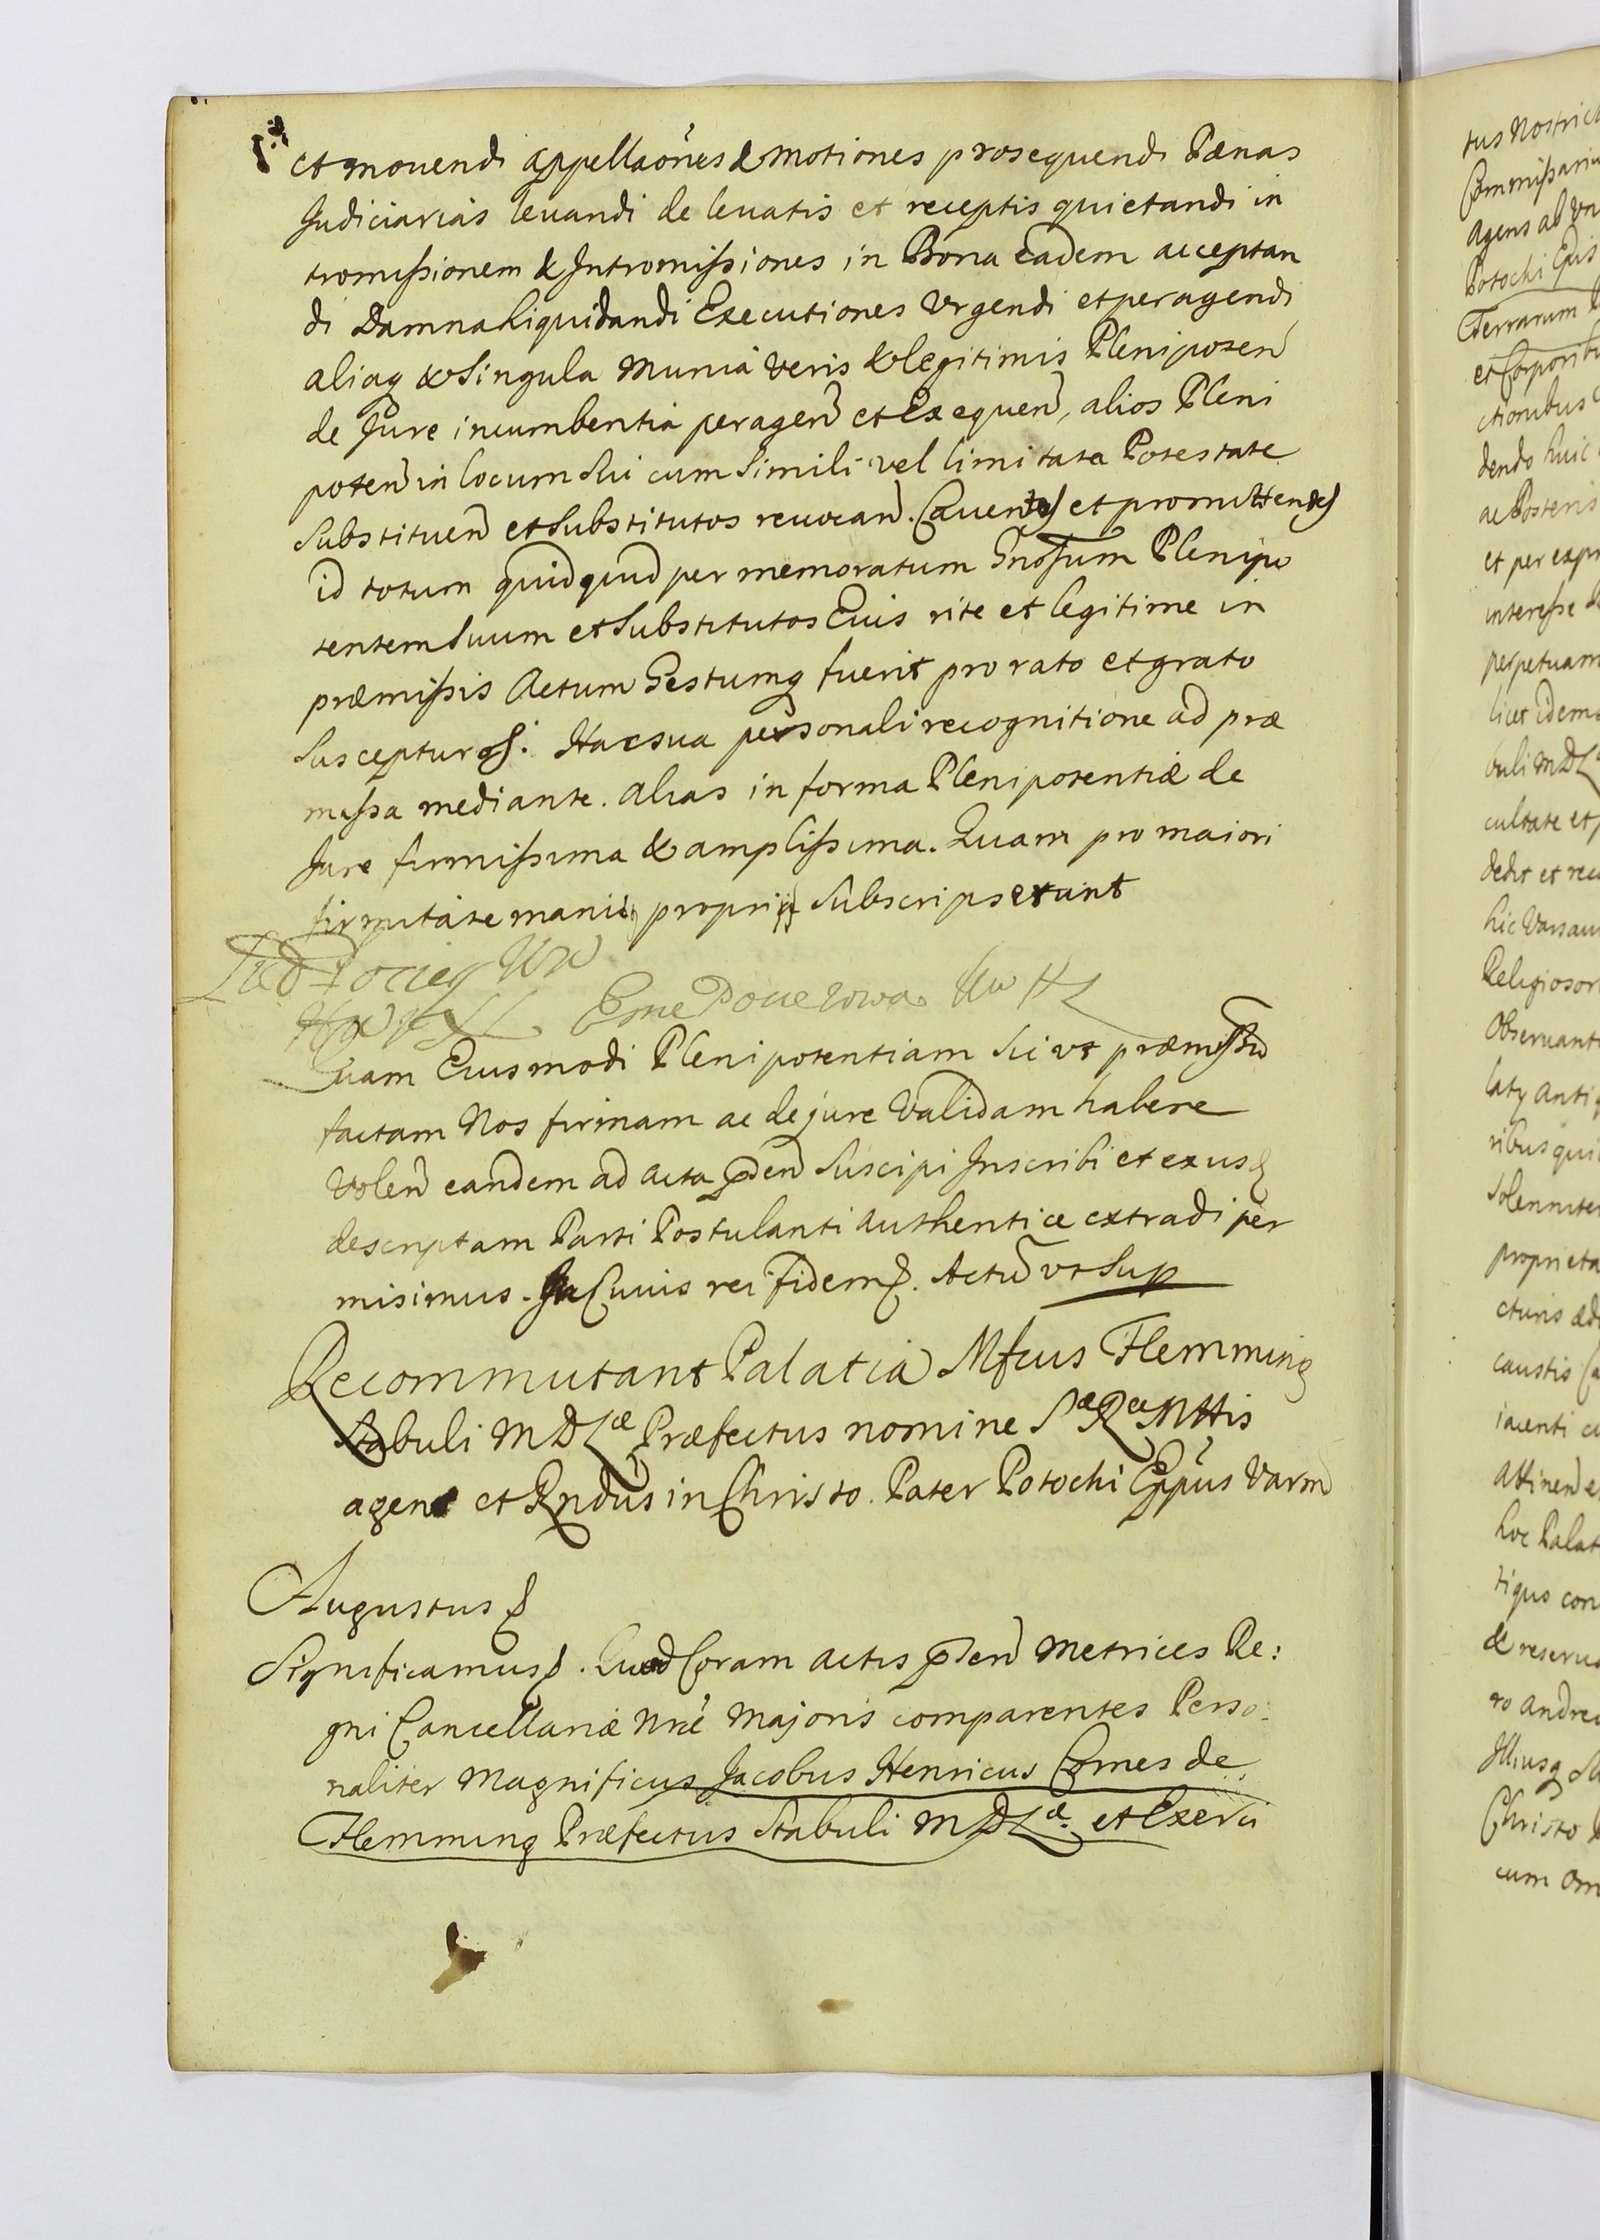 et mouendi appellaoñes & motiones prosequendi Pænas
Judiciarias leuandi de leuatis et receptis quietandi in
tromißionem & Intromißiones in Bona eadem acceptan
di Damna Liquidandi Executiones Vrgendi et peragendi
aliaq & Singula munia veris & legitimis Plenipoten
de Jure incumbentia peragen et Exequen, alios Pleni
poten in locum Sui cum Simili vel limitata Potestate
Substituen et Substitutos reuocan. Cauentes et promittentes
id totum quidquid per memoratum Gnosum Plenipo
tentem Suum et Substitutos Eius rite et legitime in
præmißis Actum Gestumq fuerit pro rato et grato
Suscepturos. Hac sua personali recognitione ad præ
mißa mediante. alias in forma Plenipotentiæ de
Jure firmißima & amplißima. Quam pro maiori
firmitate manib propriis Subscripserunt
Lud Pociey WW
Eme Pocieiowa
Quam Eiusmodi Plenipotentiam Sic vt præmißu
factam Nos firmam ac de jure Validam habere
Volen eandem ad acta pden Suscipi Inscribi et ex us
descriptam Parti Postulanti authentice extradi per
misimus. In Cuius rei fidem. Actu vt Sup
Recommutant Palatia Mfcus Flemming
Stabuli MDLæ Præfectus nomine Sæ Ræ Mttis
agens et Rndus in Christo Pater Potochi Eppus Varm
Augustus
Significamus. Quod Coram actis pden Metrices Re:
gni Cancellariæ Nræ Majoris comparentes Perso:
naliter Magnificus Jacobus Henricus Comes de
Flemming Præfectus Stabuli MDLæ. et Exerci
tus Nostri
Commißari
agens ab
Potochi Epis
Terrarum
et Corporib
ctionibus
dendo huic
ac Posteris
et per expr
intereße
perpetuam
licet idem
buli MDL
cultate et
dedit et
hic Varsau
Religiosor
Obseruant
laty anti
ribus qui
Solenniter
proprieta
cturis
caustis
iacenti
attinen
hoc Palat
tiguo con
& reserua
ro andre
Illiusq
Christo
cum om